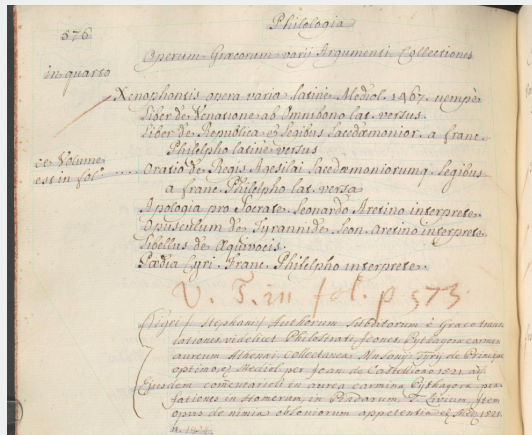 576
Philologia
Operum Græcorum varii Argumenti Collectiones
in quarto
Xenophontis opera varia latine Mediol. 1467. nempè
Liber de Venatione ab Omnibono lat. versus.
Liber de Republica et Legibus Lacedæmonior. a franc.
Philelpho latinè versus
ce Volume
est in fol°
Oratio de Regis Agesilai Lacedæmoniorumq. Legibus
a franc. Philelpho lat. versa
Apologia pro Socrate Leonardo Aretino interprete
Opusculum de Tyrannide Leon. Aretino interprete
Libellus de Æquivocis.
Pædia Cyri. Franc. Philelpho interprete.
V. T. in fol. p 573
Nigri / Stephani / Authorum subditorum è Græco
lationes videlicet Philostrati Icones Pythagoræ carmen
aureum Athenæi Collectanea Musonij Tyrij de Principe
optimo et Mediol. per Joan. de Castelliono 1521.
Ejusdem comentarioli in aurea carmina Pythagoræ præ
fationes in Homerum, in Pindarum T. Livium, Item
opus de nimia obsoniorum appetentia etc. 1521.